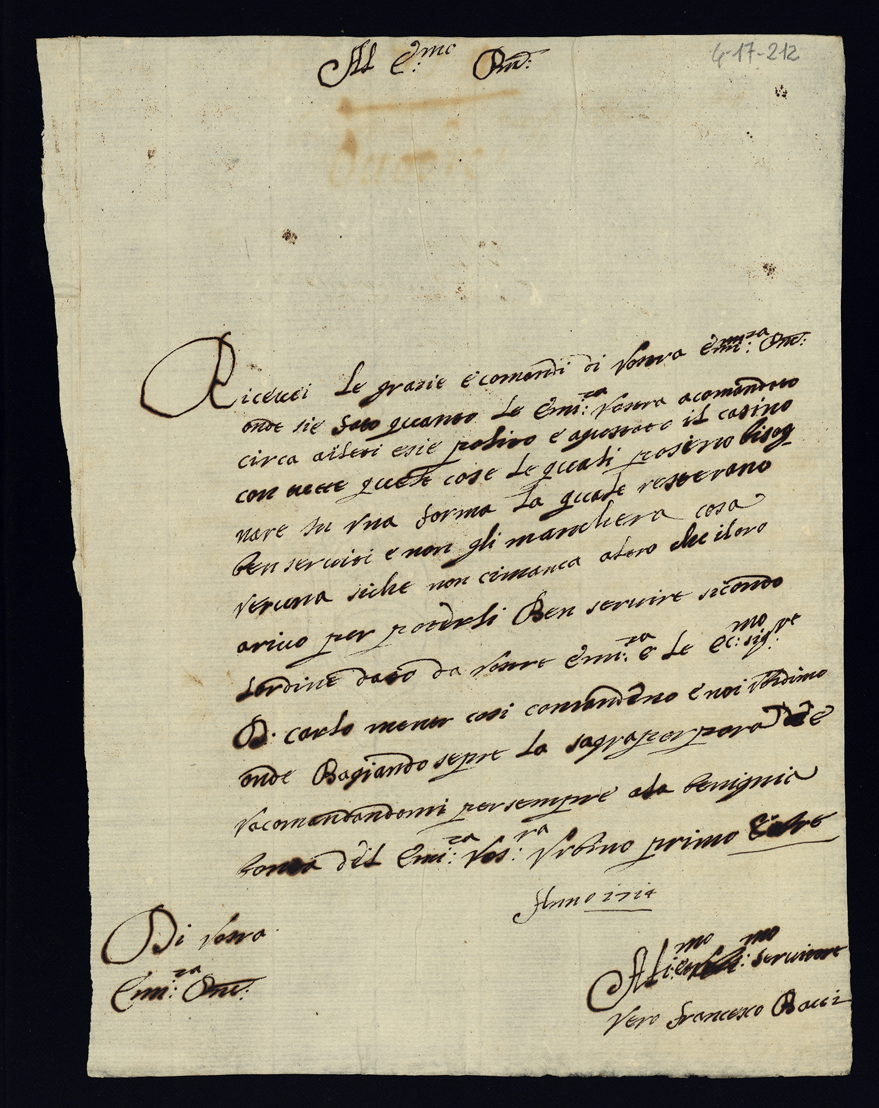 Al E.mo Pne:
4-17-212
Ricevei Le grazie e comandi di Vostra Emi:za Pne:
onde sie fato quanto Le Emi:za Vostra acomandato
circa aileti esie polito e agustato il casino
con tutte quele cose Le quali posino bisog
nare in Vna forma La quale resterano
ben serviti e non gli manchera cosa
Veruna siche non cimanca altro che iloro
arivo per poterli Ben servire sicondo
Lordine dato da Vostre Emi:za e Le Ec:mo sig:re
D. Carlo mentr cosi comandeno e noi
onde Bagiando sepre La sagra perpora
racomandandomi persempre ala benignia
bonta del Emi:za Vos:ra Vrbino primo
Anno 1714
Di Vostra
Emi:za Pne:
servitore
Vero Francesco Bacci